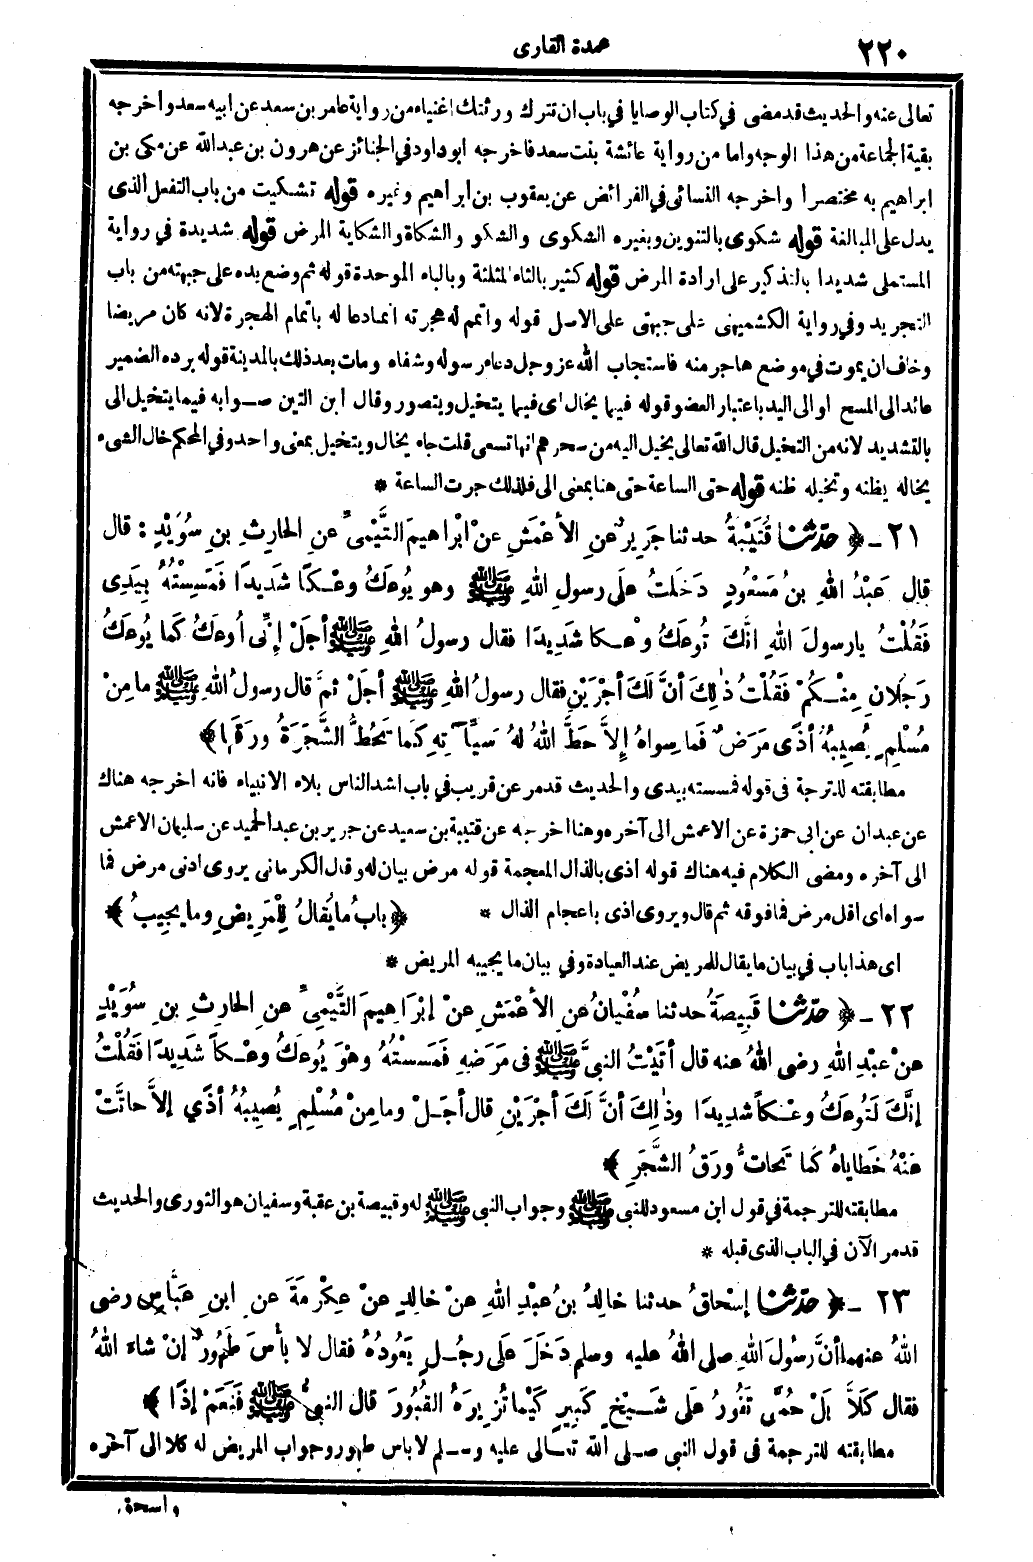 ٢٢٠
عمدة القارى
تعالى عنه والحديث قد مضى في كتاب الوصايا في باب ان تترك ورثتك اغنياء من رواية عامر بن سعد عن ابيه سعد واخرجه
بقية الجماعة من هذا الوجه واما من رواية عائشة بنت سعد فاخرجه ابو داود في الجنائز عن هرون بن عبد الله عن مكى بن
ابراهيم به مختصرا واخرجه النسائى في الفرائض عن يعقوب بن ابراهيم وغيره قوله تشكيت من باب التفعل الذى
يدل على المبالغة قوله شكوى بالتنوين وبغيره الشكوى والشكو والشكاة والشكاية المرض قوله شديدة في رواية
المستملى شديدا بالتذكير على ارادة المرض قوله كثير بالثاء المثلثة وبالباء الموحدة قوله ثم وضع يده على جبهته من باب
التجريد وفي رواية الكشميهنى على جبهتى على الاصل قوله واتمم له هجرته انما دعا له باتمام الهجرة لانه كان مريضا
وخاف ان يموت في موضع هاجر منه فاستجاب الله عز وجل دعاء رسوله وشفاه ومات بعد ذلك بالمدينة قوله برده الضمير
عائد الى المسح او الى اليد باعتبار العضو قوله فيما يخال اى فيما يتخيل ويتصور وقال ابن التين صوابه فيما يتخيل الى
بالتشديد لانه من التخيل قال الله تعالى يخيل اليه من سحرهم انها تسعى قلت جاء يخال ويتخيل بمعنى واحد وفي المحكم خال الشىء
يخاله يظنه وتخيله ظنه قوله حتى الساعة حتى هنا بمعنى الى فلذلك جرت الساعة *
٢١ - ﴿ حدّثنا قُتَيْبَةُ حدثنا جَرِيرٌ عنِ الأعْمَشِ عنْ ابْراهِيمَ التَّيْمِىِّ عنِ الحارِثِ بنِ سُوَيْدٍ : قال
قال عَبْدُ اللهِ بنُ مَسْعُودٍ دَخَلتُ علَى رسولِ اللهِ ﷺ وهو يُوعَكُ وعْكًا شَدِيدًا فَمَسِسْتُهُ بِيَدِى
فَقُلْتُ يارسولَ اللهِ انَّكَ تُوعَكُ وعْكا شَدِيدًا فقال رسولُ اللهِ ﷺ أجَلْ إنِّى أُوعَكُ كَما يُوعَكُ
رَجُلانِ مِنْكُمْ فَقُلْتُ ذٰلِكَ أنَّ لَكَ أجْرَيْنِ فقال رسولُ اللهِ ﷺ أجَلْ ثمَّ قال رسولُ اللهِ ﷺ مامِنْ
مُسْلِمٍ يُصِيبُهُ أذًى مَرَضٌ فَما سِواهُ إلاَّ حَطَّ اللهُ لهُ سَيِّآتِهِ كَما تَحُطُّ الشَّجَرَةُ ورَقَها﴾
مطابقته للترجمة فى قوله فمسسته بيدى والحديث قد مر عن قريب في باب اشد الناس بلاء الانبياء فانه اخرجه هناك
عن عبدان عن ابى حمزة عن الاعمش الى آخره وهنا اخرجه عن قتيبة بن سعيد عن جرير بن عبد الحميد عن سليمان الاعمش
الى آخره ومضى الكلام فيه هناك قوله اذى بالذال المعجمة قوله مرض بيان له وقال الكرمانى يروى ادنى مرض فما
سواه اى اقل مرض فما فوقه ثم قال ويروى اذى باعجام الذال * ﴿ بابُ ما يُقالُ لِلْمَرِيضِ وما يجِيبُ ﴾
اى هذا باب في بيان ما يقال للمريض عند العيادة وفي بيان ما يجيبه المريض *
٢٢ - ﴿ حدّثنا قَبِيصَةُ حدثنا سُفْيانُ عنِ الأعْمَشِ عنْ إبْرَاهِيمَ التَّيْمِىِّ عنِ الحارِثِ بنِ سُوَيْدٍ
عنْ عبْدِ اللهِ رضى اللهُ عنه قال أتَيْتُ النبىَّ ﷺ فى مَرَضهِ فَمَسسْتُهُ وهْوَ يُوعَكُ وعْكاً شَدِيدًا فَقُلْتُ
إنَّكَ لَتُوعَكُ وعْكاً شدِيدًا وذٰلِكَ أنَّ لَكَ أجْرَيْنِ قال أجَلْ وما مِنْ مُسْلِمٍ يُصِيبُهُ أذًي إلاَّ حاتَّتْ
عَنْهُ خَطاياهُ كَما تَحاتُّ ورَقُ الشَّجَرِ ﴾
مطابقته للترجمة في قول ابن مسعود للنبى ﷺ وجواب النبى ﷺ له وقبيصة بن عقبة وسفيان هو الثورى والحديث
قد مر الآن في الباب الذى قبله *
٢٣ - ﴿ حدّثنا إسْحاقُ حدثنا خالِدُ بنُ عبْدِ اللهِ عنْ خالِدٍ عنْ عِكْرِمَةَ عنِ ابنِ عَبَّاسٍ رضى
اللهُ عنهما أنَّ رسُولَ اللهِ صلى اللهُ عليه وسلم دَخَلَ علَى رجُلٍ يَعُودُهُ فقال لا بأْسَ طَهُورٌ إنْ شاءَ اللهُ
فقال كَلاَّ بَلْ حُمَّى تَفُورُ علَى شَيْخٍ كَبِيرٍ كَيْما تُزِيرَهُ القُبُورَ قال النبىُّ ﷺ فَنَعَمْ إذًا ﴾
مطابقته للترجمة فى قول النبى صلى الله تعالى عليه وسلم لاباس طهور وجواب المريض له كلا الى آخره
واسحق